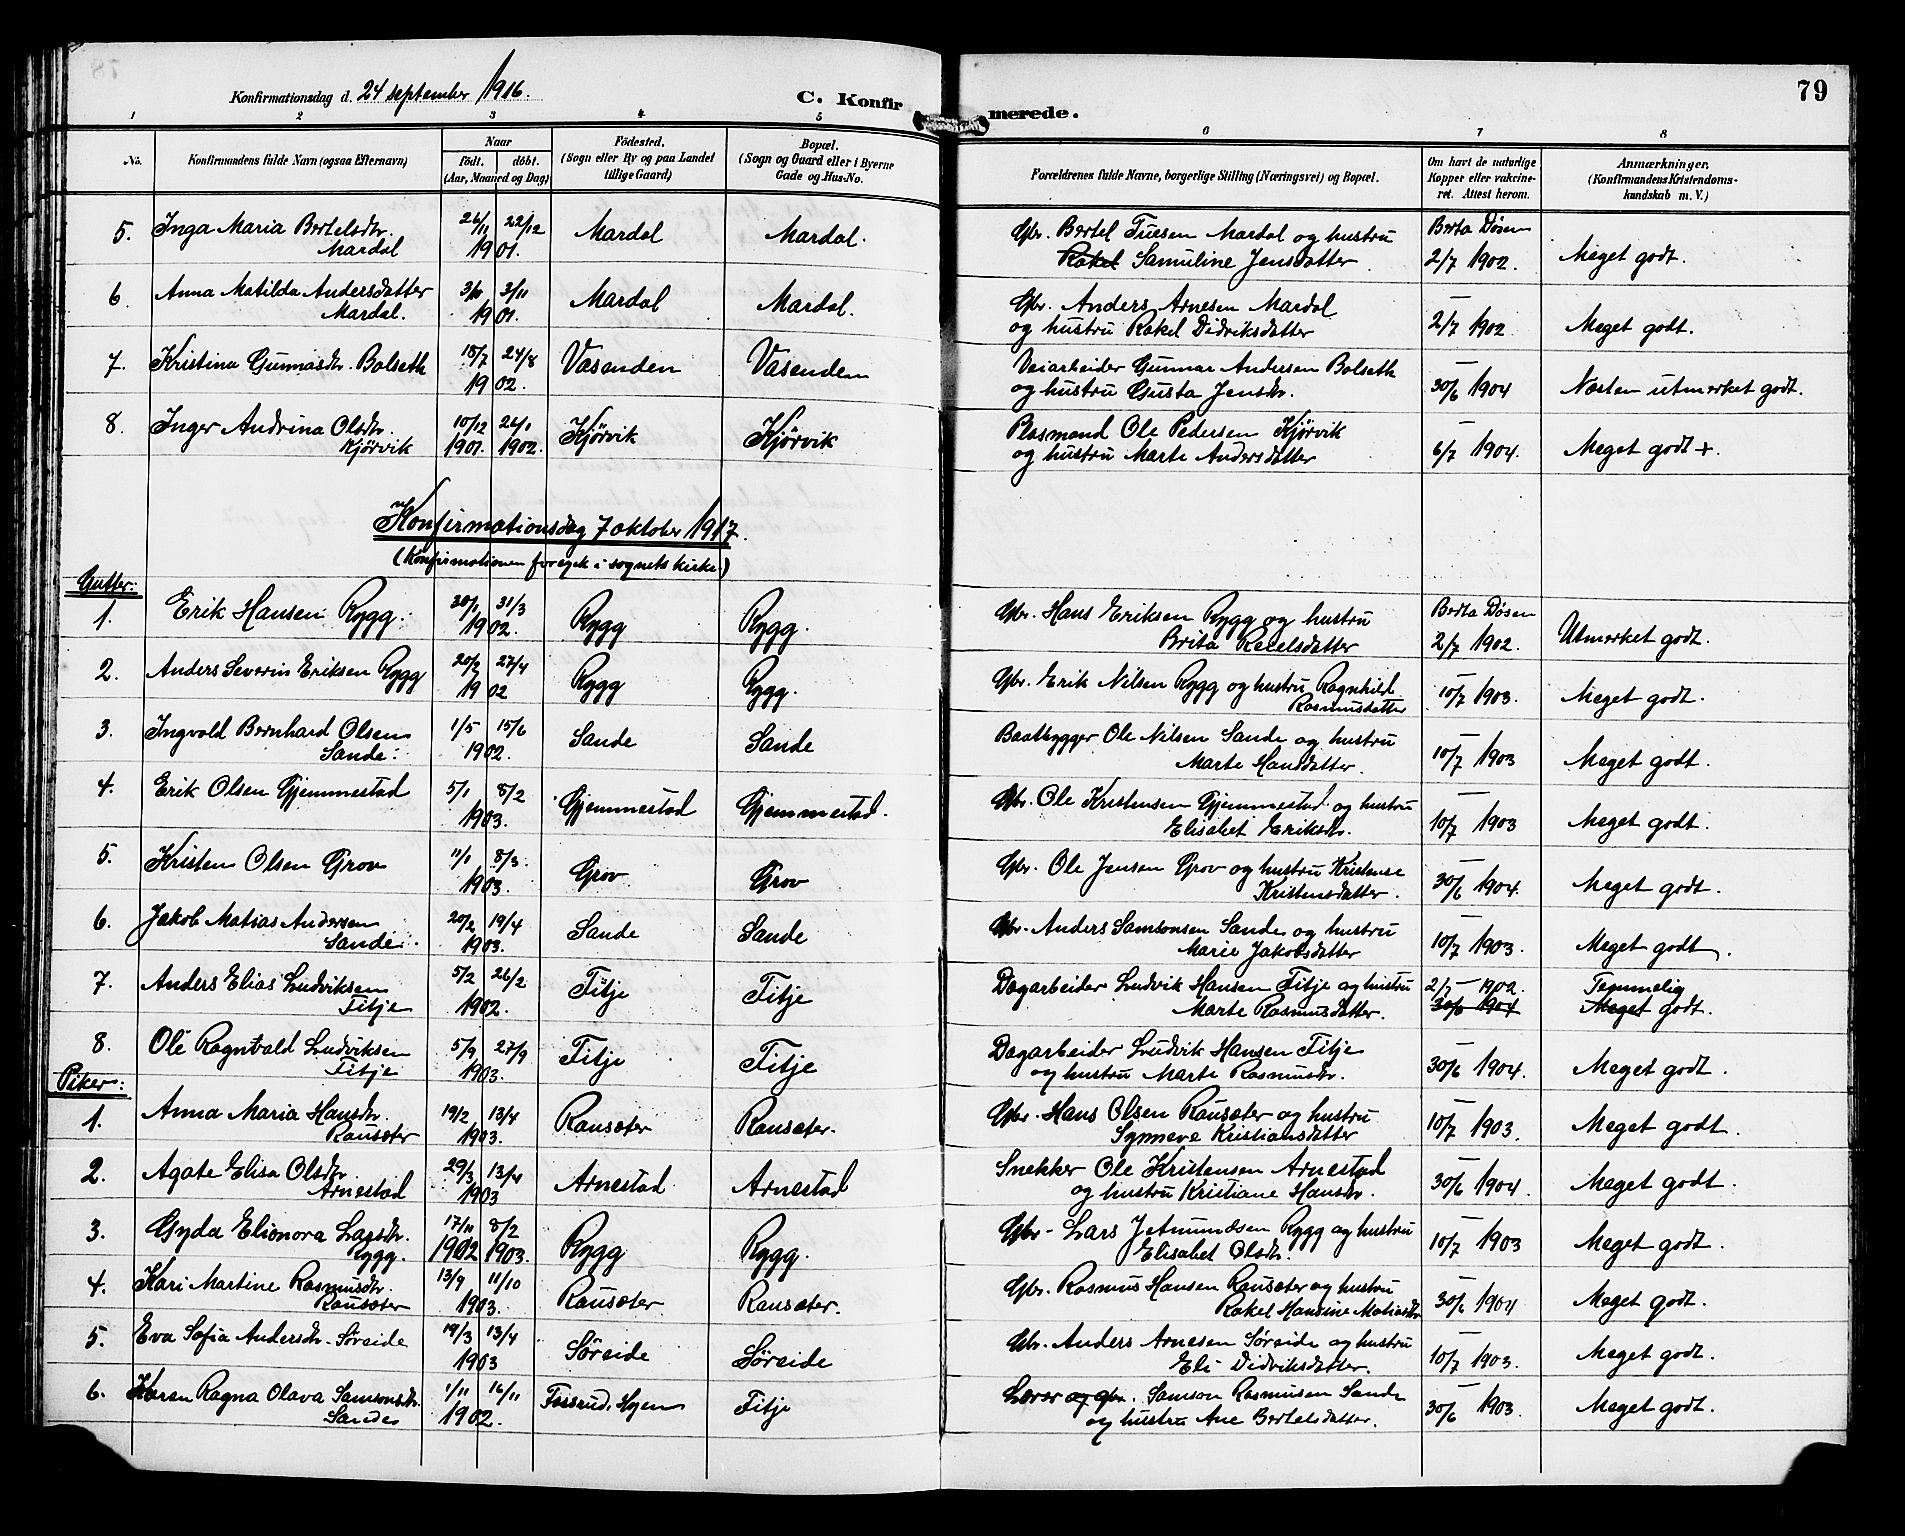 79
Konfirmationsdag d. 24 september 1916.
C. Konfirmerede.
1 2 3 4 5 6 7 8
No. Konfirmandens fulde Navn (ogsaa Efternavn) Naar födt. döbt. (Aar, Maaned og Dag) Födested. (Sogn eller By og paa Landet tillige Gaard) Bopæl. (Sogn og Gaard eller i Byerne Gade og Hus-No. Forældrenes fulde Navne, borgerlige Stilling (Næringsvei) og Bopæl. Om havt de naturlige Kopper eller vakcineret. Attest herom. Anmærkninger. (Konfirmandens Kristendomskundskab m. V.)
5. Inga Maria Bertelsdtr. 26/11 22/12 Mardal Mardal. Gbr. Bertel Tuesen Mardal og hustru Berta Døsen
Mardal 1901. Rakel Samuline Jensdatter. 2/7 1902. Meget godt.
6. Anna Matilda Andersdatter 3/10 3/11 Mardal Mardal. Gbr. Anders Arnesen Mardal —
Mardal. 1901. og hustru Rakel Didriksdatter 2/7 1902 Meget godt.
7. Kristina Gunnarsdtr. Bolseth 18/7 24/8 Vasenden Vasenden Veiarbeider Gunnar Andersen Bolseth —
1902 og hustru Gusta Jensdtr. 30/6 1904 Næsten utmerket godt.
8. Inger Andrina Olsdtr. 10/12 26/1 Kjørvik Kjørvik Plasmand Ole Pedersen Kjørvik —
Kjørvik 1901. 1902. og hustru Marte Andersdatter 6/7 1904. Meget godt +.
Konfirmationsdag 7 oktober 1917.
(Konfirmationen foregik i sognets kirke.)
Gutter:
1. Erik Hansen Rygg. 30/1 31/3 Rygg Rygg. Gbr. Hans Eriksen Rygg og hustru Berta Døsen
1902. Brita Reielsdatter 2/7 1902. Utmerket godt.
2. Anders Severin Eriksen Rygg 20/2 27/4 Rygg Rygg. Gbr. Erik Nilsen Rygg og hustru Ragnhild —
1902 Rasmusdatter 10/7 1903. Meget godt.
3. Ingvald Bernhard Olsen 1/5 15/6 Sande Sande Baatbygger Ole Nilsen Sande og hustru —
Sande. 1902. Marte Hansdatter. 10/7 1903 Meget godt.
4. Erik Olsen Gjemmestad 5/1 8/2 Gjemmestad Gjemmestad. Gbr. Ole Kristensen Gjemmestad og hustru —
1903. Elisabet Eriksdtr. 10/7 1903 Meget godt.
5. Kristen Olsen Grov 11/1 8/3. Grov Grov Gbr. Ole Jensen Grov og hustru Kristense —
1903. Kristensdatter. 30/6 1904. Meget godt.
6. Jakob Matias Andersen 20/2 19/4 Sande Sande Gbr. Anders Samsonsen Sande og hustru —
Sande. 1903. Marie Jakobsdatter 10/7 1903. Meget godt.
7. Anders Elias Ludviksen 5/2 26/2 Fitje Fitje Dagarbeider Ludvik Hansen Fitje og hustru 2/7 — 1902. Temmelig
Fitje 1902. Marte Rasmusdatter. 30/6 1904 Meget godt.
8. Ole Ragnvald Ludviksen 5/9 27/9 Fitje Fitje Dagarbeider Ludvik Hansen Fitje —
Fitje 1903. og hustru Marte Rasmusdtr. 30/6 1904. Meget godt.
Piker:
1. Anna Maria Hansdtr. 19/2 13/4 Rausæter Rausæter. Gbr. Hans Olsen Rausæter og hustru —
Rausæter 1903. Synneve Kristiansdatter 10/7 1903. Meget godt.
2. Agate Elisa Olsdtr. 29/3 13/4 Arnestad Arnestad Snekker Ole Kristensen Arnestad —
Arnestad 1903 og hustru Kristiane Hansdtr. 30/6 1904. Meget godt.
3. Gyda Elionora Larsdtr. 17/11 8/2 Rygg Rygg. Gbr. Lars Jetmundsen Rygg og hustru —
Rygg. 1902 1903. Elisabet Olsdtr. 10/7 1903 Meget godt.
4. Kari Martine Rasmusdtr. 13/9 11/10 Rausæter Rausæter. Gbr. Rasmus Hansen Rausæter og hustru —
Rausæter 1903. Rakel Hansine Matiasdtr 30/6 1904 Meget godt.
5. Eva Sofia Andersdtr. Søreide 19/3 13/4 Søreide Søreide Gbr. Anders Arnesen Søreide og hustru —
1903 Eli Didriksdatter. 10/7 1903. Meget godt.
6. Karen Ragna Olava Samsonsdtr. 1/11 16/11 Hyen Fitje Lærer og gbr. Samson Rasmusen Sande —
Sandes 1902. og hustru Ane Bertelsdatter. 30/6 1903. Meget godt.